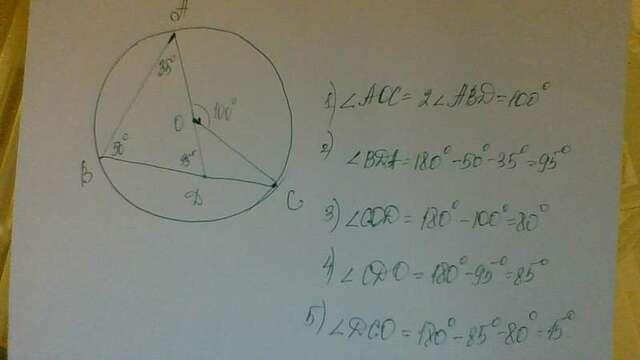 A
35°
100°
O
50°
95°
B
D
C
1) ∠AOC = 2∠ABD = 100°
2) ∠BDA = 180° - 50° - 35° = 95°
3) ∠COD = 180° - 100° = 80°
4) ∠CDO = 180° - 95° = 85°
5) ∠DCO = 180° - 85° - 80° = 15°